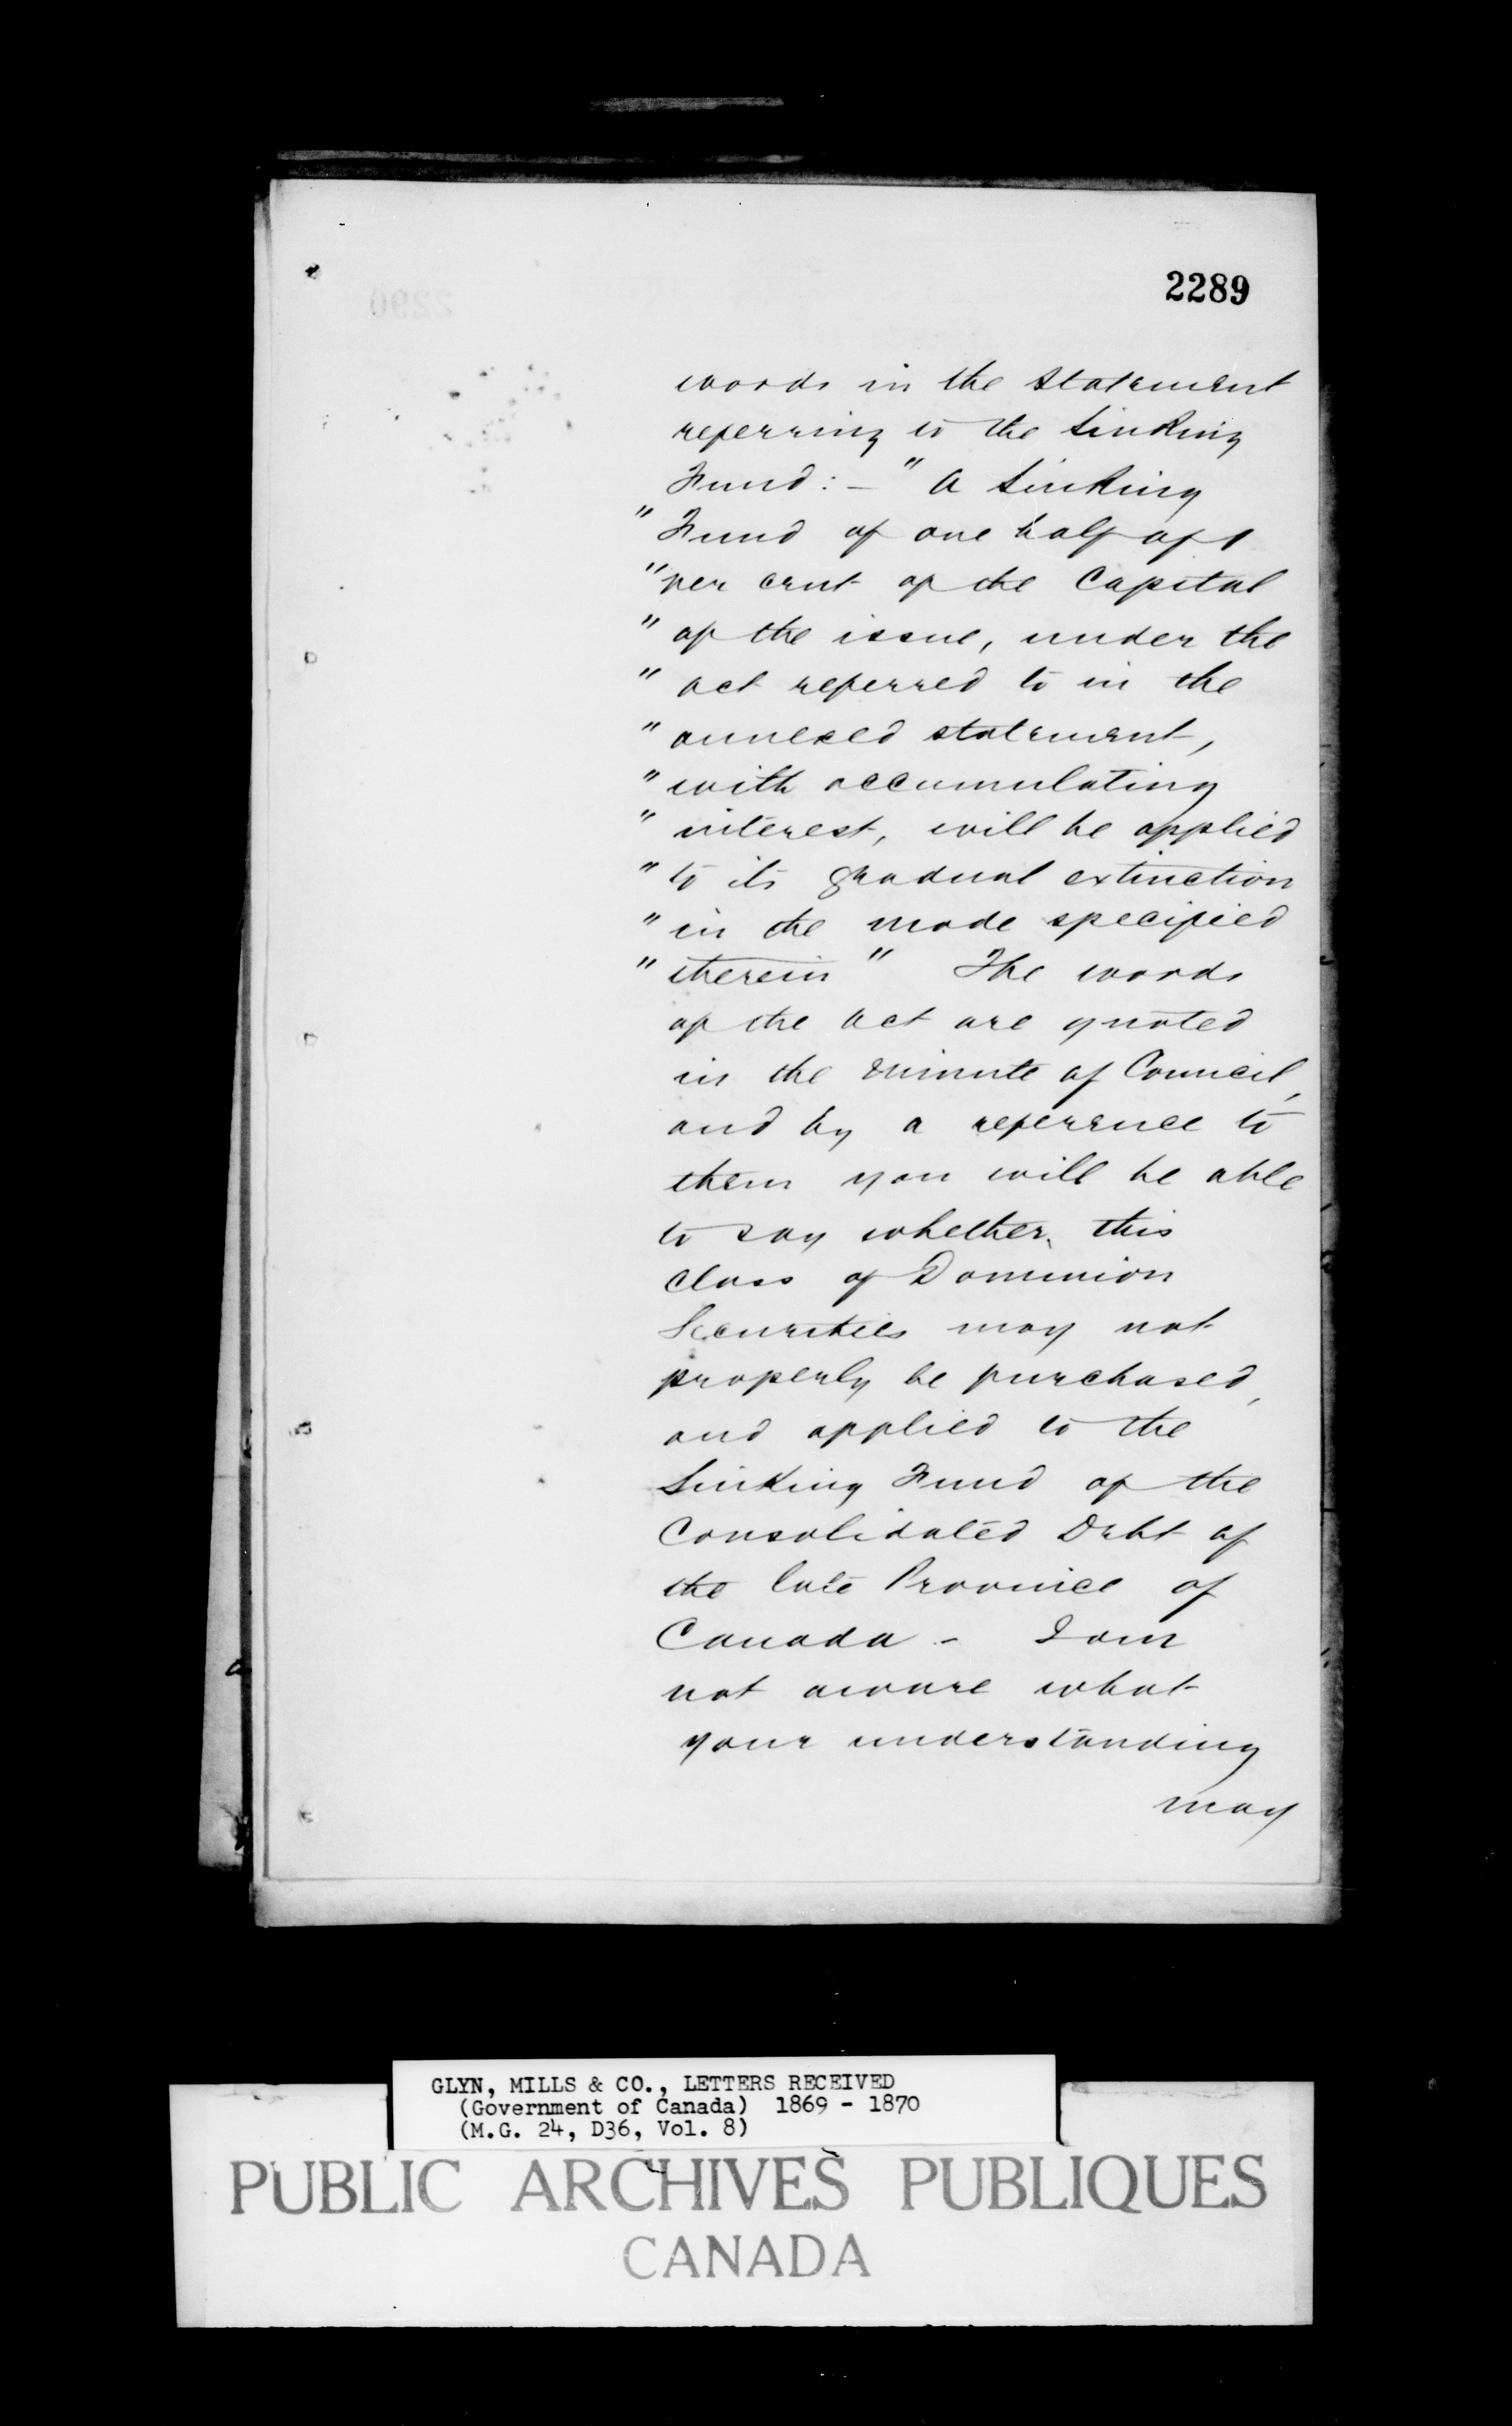 2289
words in the statement
referring to the Sinking
Fund : — " A Sinking
" Fund of one half of 1
" per cent of the Capital
" of the issue, under the
" act referred to in the
" annexed statement,
" with accumulating
" interest, will be applied
" to its gradual extinction
" in the mode specified
" therein " The words
of the Act are quoted
in the Minute of Council,
and by a reference to
them you will be able
to say whether this
class of Dominion
Securities may not
properly be purchased,
and applied to the
Sinking Fund of the
Consolidated Debt of
the late Province of
Canada - I am
not aware what
your understanding
may
GLYN, MILLS & CO., LETTERS RECEIVED
(Government of Canada) 1869 - 1870
(M.G. 24, D36, Vol. 8)
PUBLIC ARCHIVES PUBLIQUES
CANADA